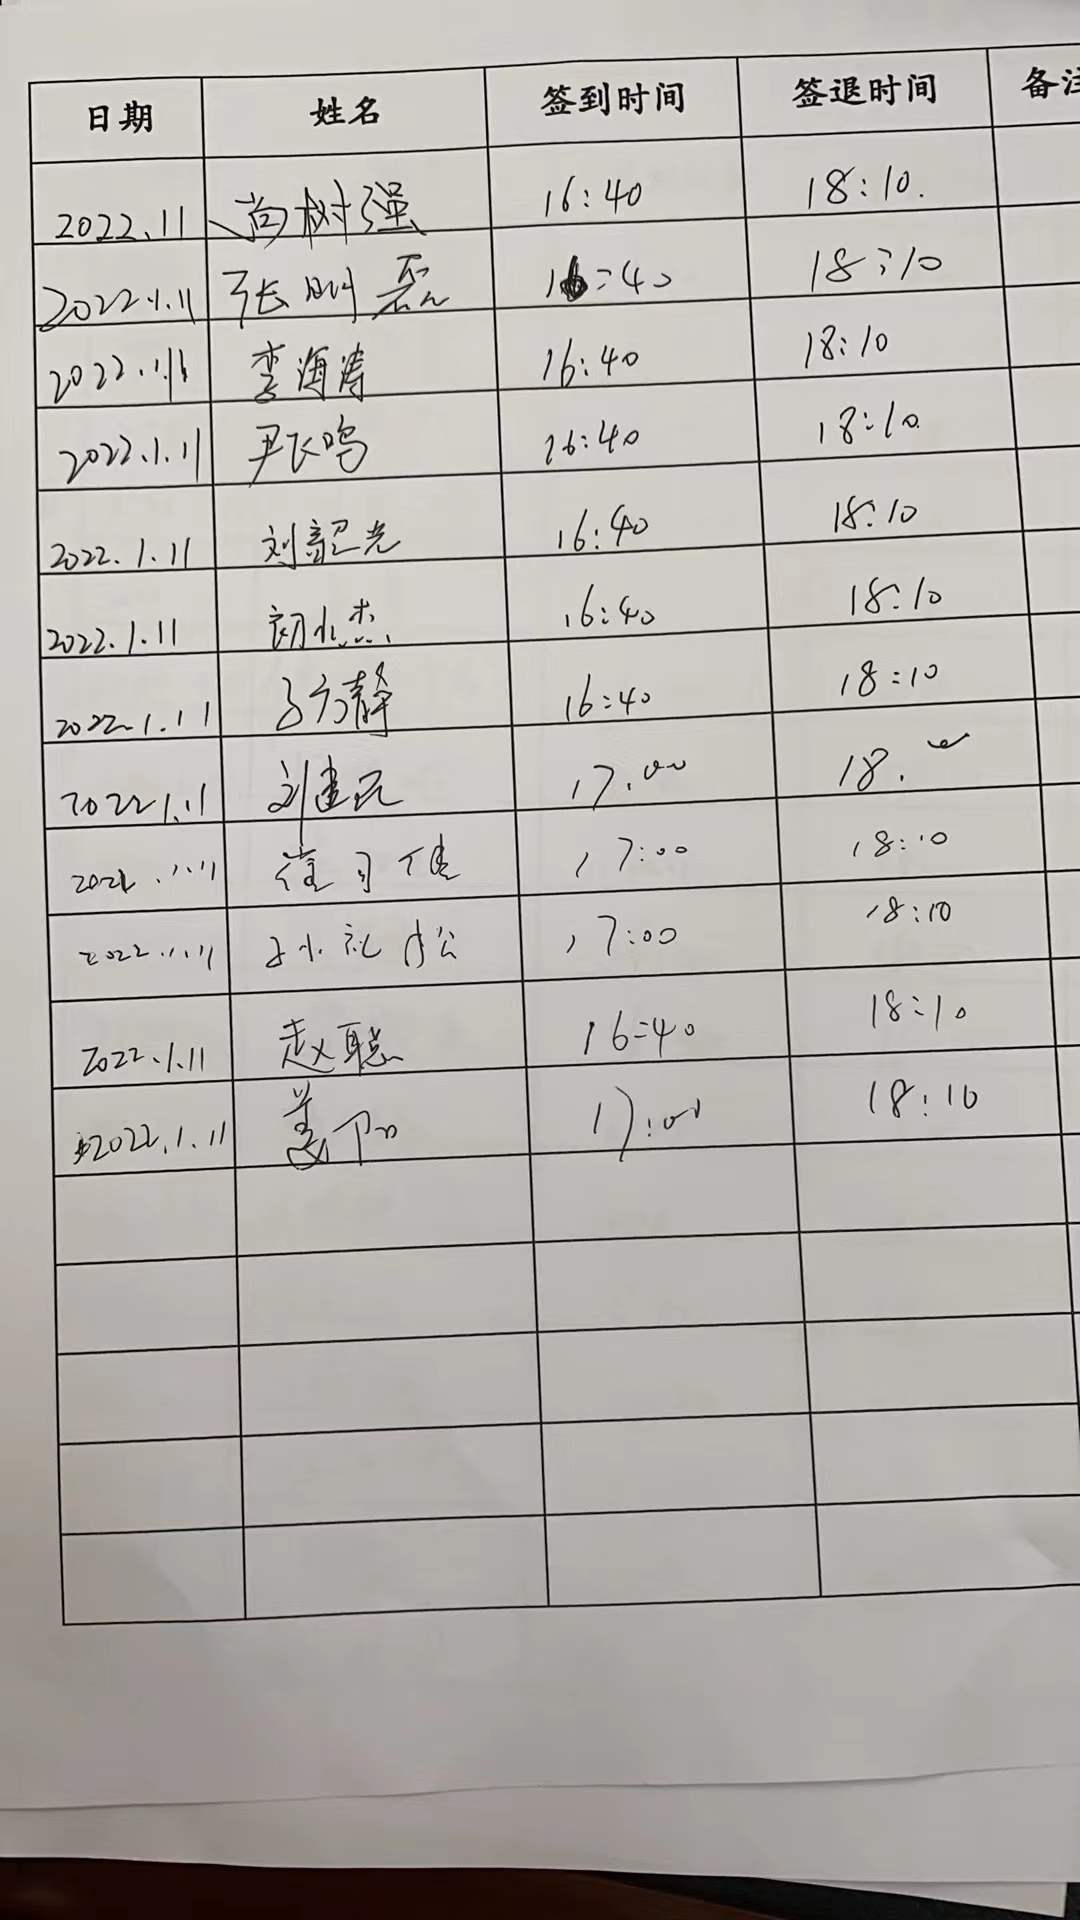 日期 姓名 签到时间 签退时间 备注
2022.11 尚树强 16:40 18:10.
2022.1.11 张 16:40 18:10
2022.1.11 李海涛 16:40 18:10
2022.1.11 尹飞鸣 16:40 18:10
2022.1.11 刘韶光 16:40 18:10
2022.1.11 16:40 18:10
2022.1.11 16:40 18:10
2022.1.11 刘建民 17.00 18.
17:00 18:10
2022.1.11 孙礼松 17:00 18:10
2022.1.11 赵聪 16:40 18:10
2022.1.11 姜 17:00 18:10